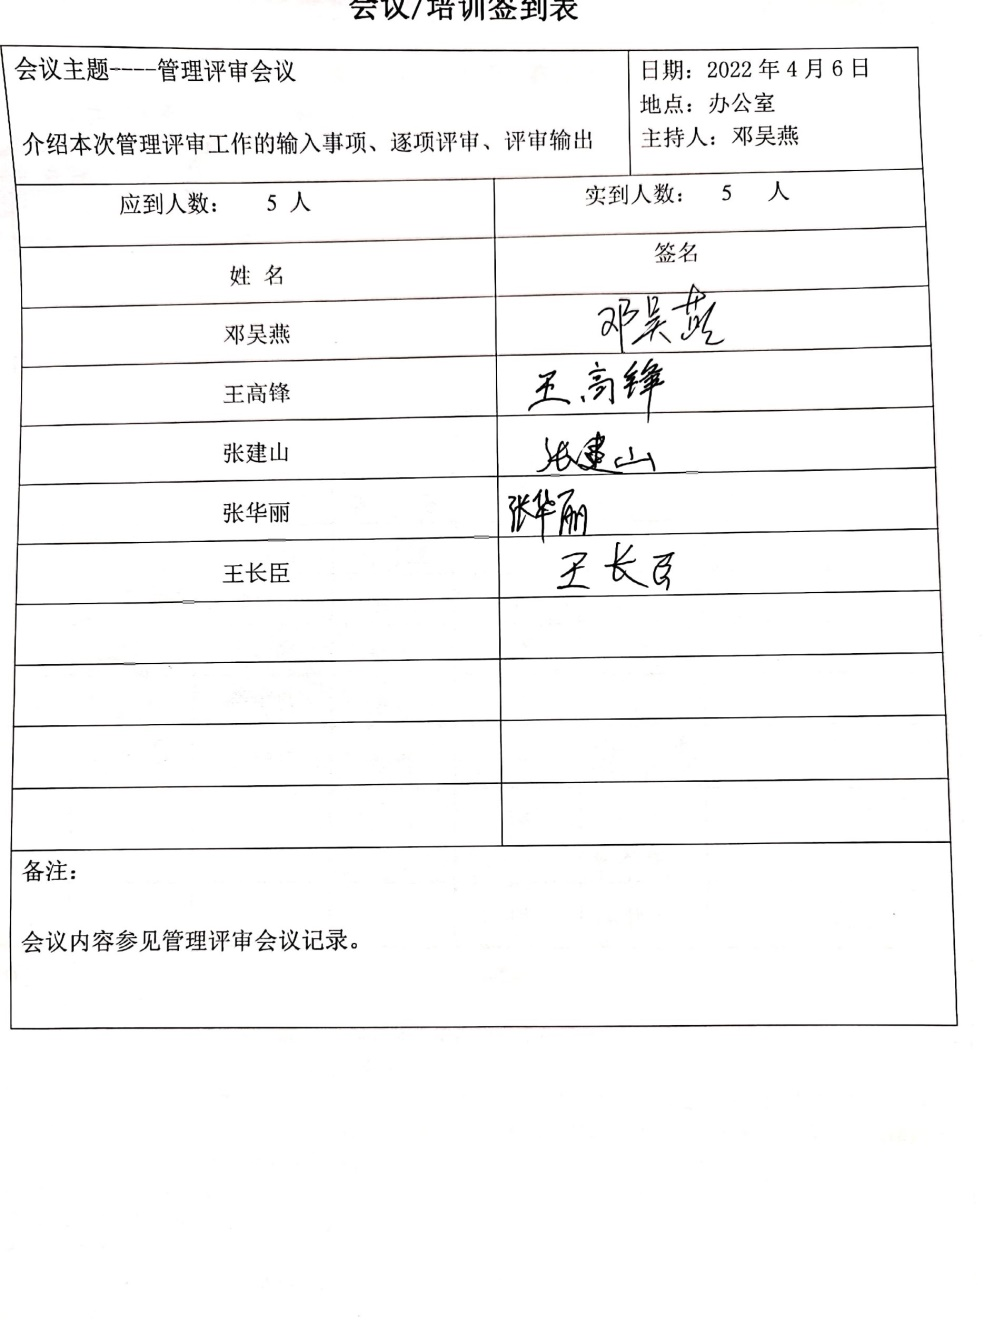 会议/培训签到表
会议主题----管理评审会议
介绍本次管理评审工作的输入事项、逐项评审、评审输出
日期：2022 年 4 月 6 日
地点：办公室
主持人：邓吴燕
应到人数： 5 人
实到人数： 5 人
姓 名
签名
邓吴燕
邓吴燕
王高锋
王高锋
张建山
张建山
张华丽
张华丽
王长臣
王长臣
备注：
会议内容参见管理评审会议记录。